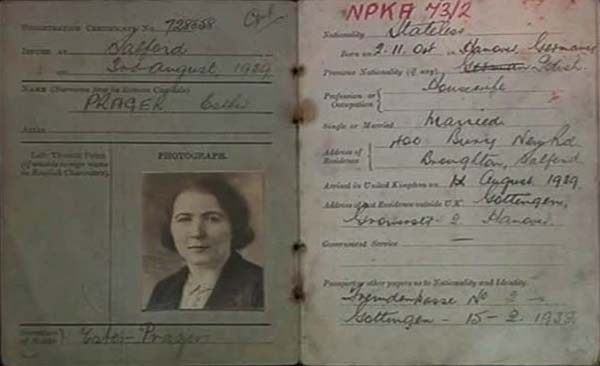 REGISTRATION CERTIFICATE No. 728658
ISSUED AT Salford
ON 2nd August 1939
NAME (Surname first in Roman Capitals)
PRAGER Esther
ALIAS
Left Thumb Print
(if unable to sign name
in English Characters).
PHOTOGRAPH.
Signature
of Holder } Ester Prager
NPKA 73/2
Nationality Stateless
Born on 2.11. in Hanover, Germany
Previous Nationality (if any) German Polish.
Profession or Occupation } Housewife
Single or Married Married
Address of Residence } 400 Bury New Rd
Broughton, Salford
Arrived in United Kingdom on August 1939
Address of last Residence outside U.K. Göttingen,
2. Hanover.
Government Service —
Passport or other papers as to Nationality and Identity.
No 2
Göttingen - 15-2.